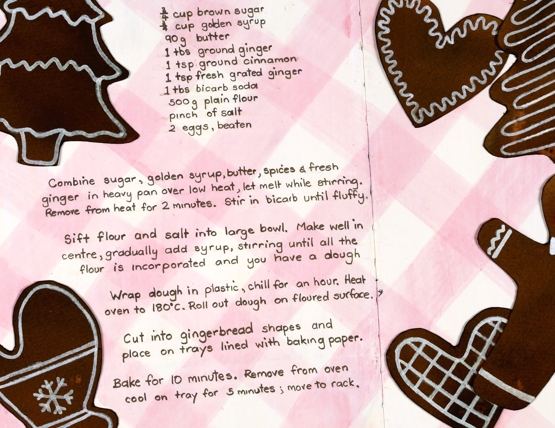 ¾ cup brown sugar
¾ cup golden syrup
90g butter
1 tbs ground ginger
1 tsp ground cinnamon
1 tsp fresh grated ginger
1 tbs bicarb soda
500g plain flour
pinch of salt
2 eggs, beaten
Combine sugar, golden syrup, butter, spices & fresh
ginger in heavy pan over low heat, let melt while stirring.
Remove from heat for 2 minutes. Stir in bicarb until fluffy.
Sift flour and salt into large bowl. Make well in
centre, gradually add syrup, stirring until all the
flour is incorporated and you have a dough
Wrap dough in plastic, chill for an hour. Heat
oven to 180°C. Roll out dough on floured surface.
Cut into gingerbread shapes and
place on trays lined with baking paper.
Bake for 10 minutes. Remove from oven
cool on tray for 5 minutes; move to rack.